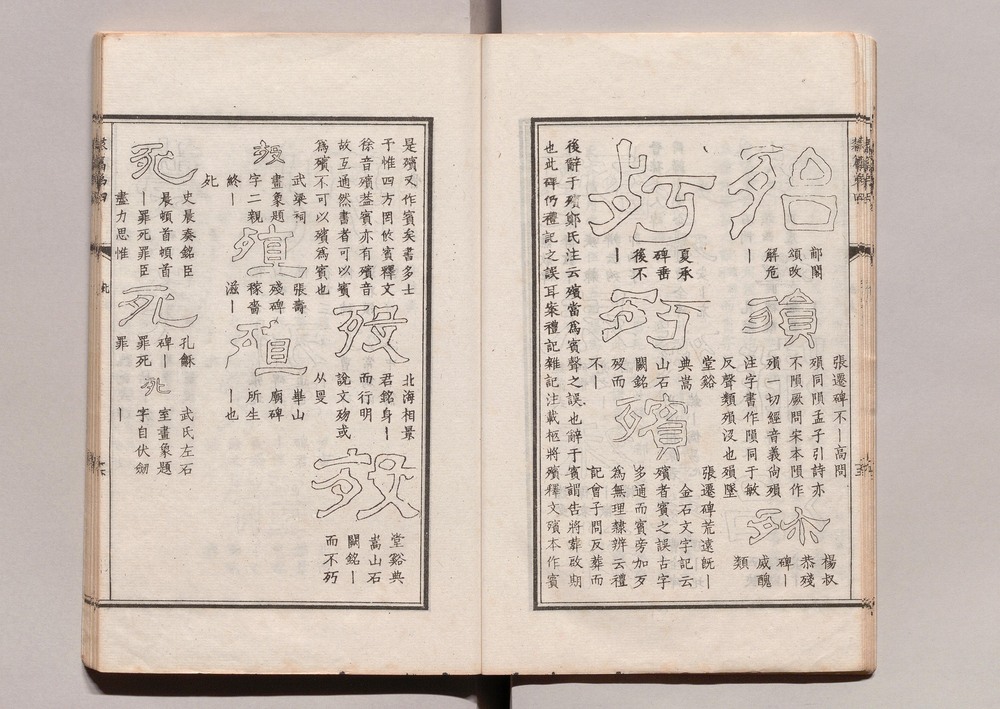 殆
郙閣
頌改
解危
丨
殞
張遷碑不丨高問
殞同隕孟子引詩亦
不隕厥問宋本隕作
殞一切經音義尙殞
注字書作隕同于敏
反聲類殞沒也殞墜
殊
楊叔
恭殘
碑丨
威醜
類
朽
夏承
碑垂
後不
丨
朽
堂谿
典嵩
山石
闕銘
歿而
不丨
殯
張遷碑荒遠旣丨
金石文字記云
殯者賓之誤古字
多通而賓旁加歹
爲無理隸辨云禮
記會子問反葬而
後辭于殯鄭氏注云殯當爲賓聲之誤也辭于賓謂告將葬改期
也此碑仍禮記之誤耳案禮記雜記注載柩將殯釋文殯本作賓
是殯又作賓矣書多士
予惟四方罔攸賓釋文
徐音殯葢賓亦有殯音
故互通然書者可以賓
爲殯不可以殯爲賓也
歿
北海相景
君銘身丨
而行明
說文歾或
从𠬛
歿
堂谿典
嵩山石
闕銘丨
而不朽
歿
武梁祠
畫象題
字二親
終丨
死
殖
張壽
殘碑
稼嗇
滋丨
殖
華山
廟碑
所生
丨也
死
史晨奏銘臣
晨頓首頓首
丨罪死罪臣
盡力思惟
死
孔龢
碑丨
罪死
罪
死
武氏左石
室畫象題
字自伏劍
丨